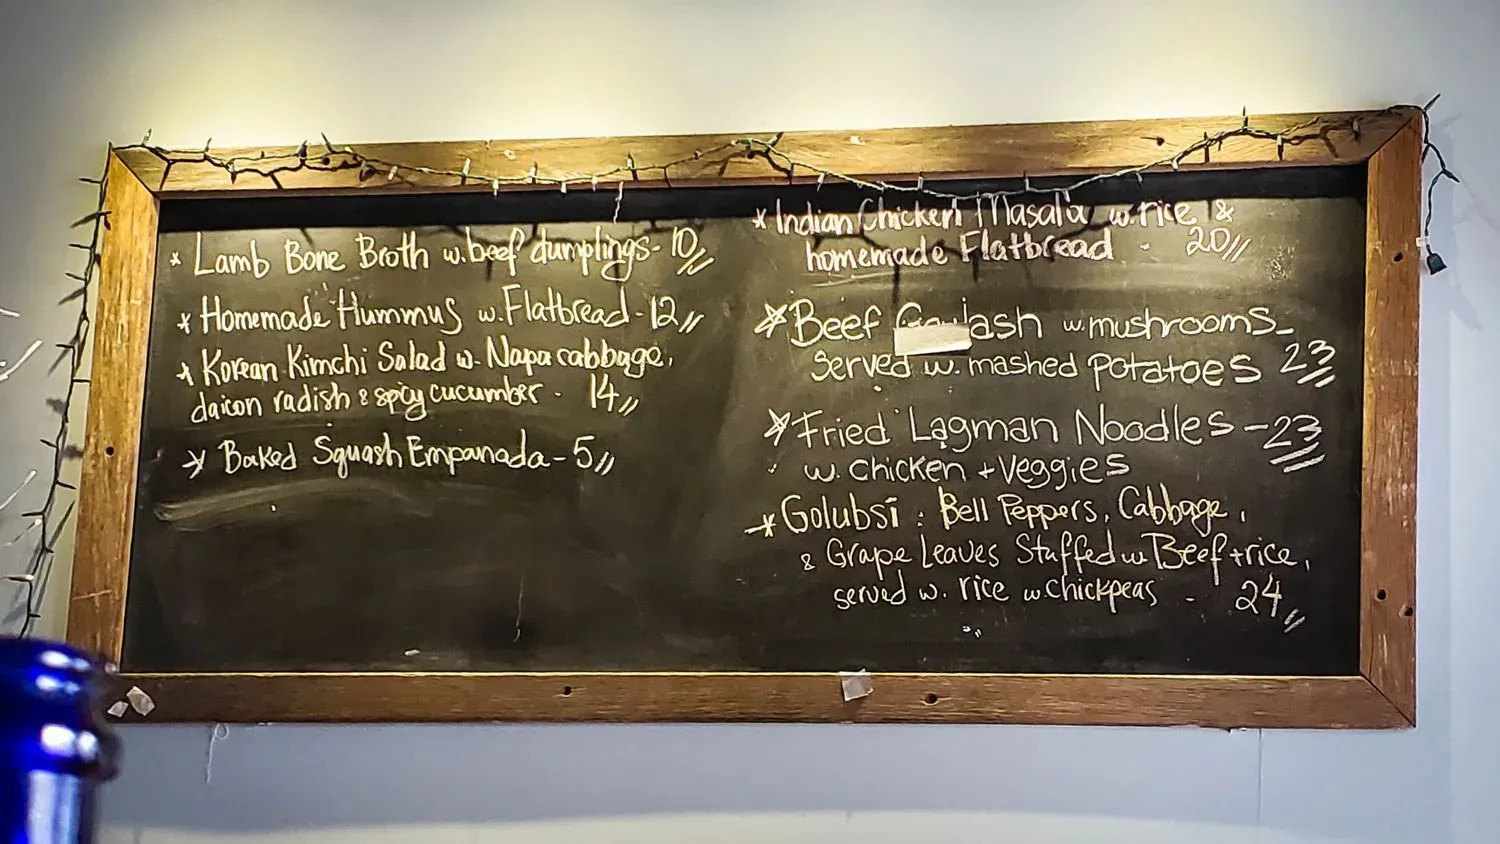 * Lamb Bone Broth w. beef dumplings - 10//
* Homemade Hummus w. Flatbread - 12//
* Korean Kimchi Salad w. Napa cabbage,
daicon radish & spicy cucumber - 14//
* Baked Squash Empanada - 5//
* Indian Chicken Masala w. rice &
homemade Flatbread - 20//
* Beef Goulash w mushrooms -
served w. mashed potatoes 23
* Fried Lagman Noodles - 23
w. chicken + veggies
* Golubsi : Bell Peppers, Cabbage,
& Grape Leaves Stuffed w Beef + rice,
served w. rice w chickpeas - 24//